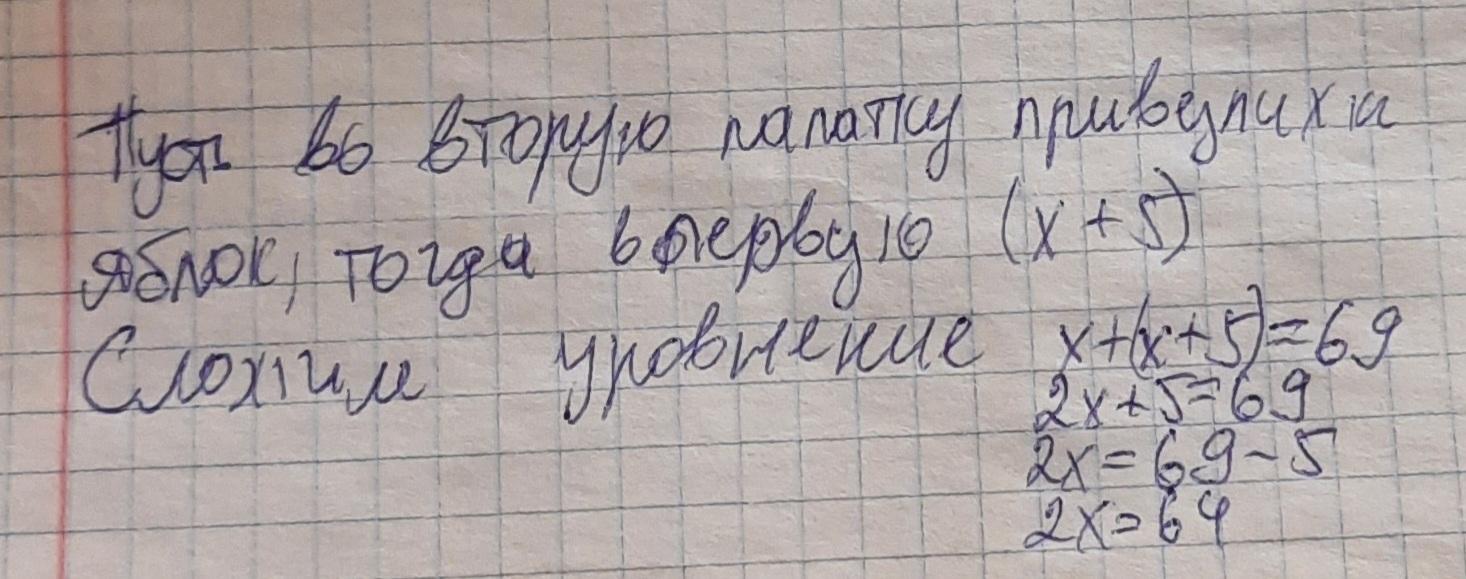 Пусть во вторую палатку привезли х ы
яблок, тогда в первую (х + 5)
Сложим уровнение х+(х+5)=69
2х+5=69
2х=69-5
2х=64